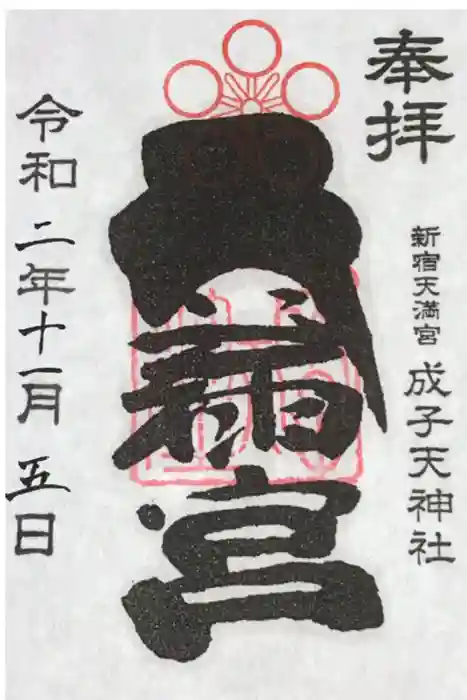 奉拝
新宿天満宮 成子天神社
宮
令和二年十一月五日